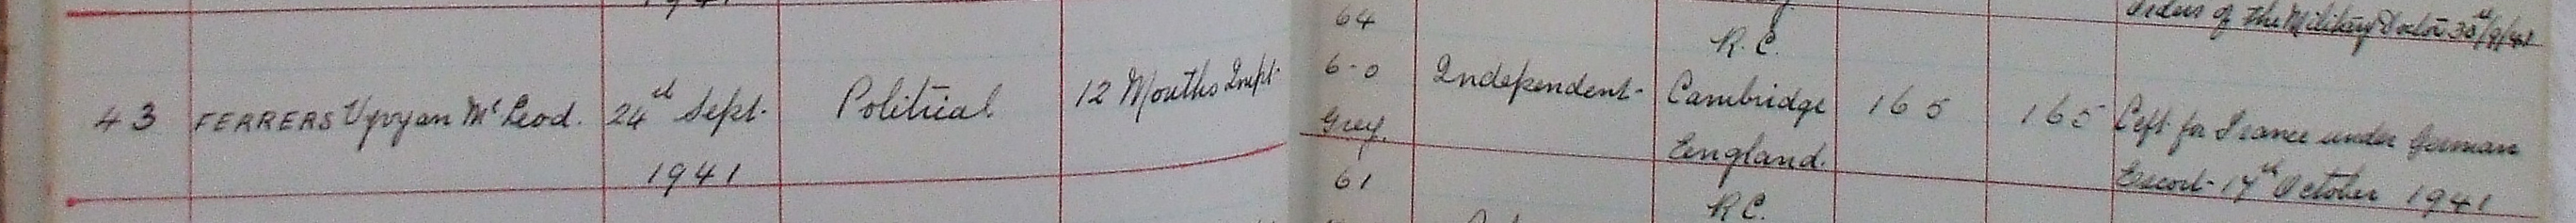 64
Orders of the Military Doctor 30th/9/41
R.C.
43 FERRERS Vyvyan Mc Leod. 24th Sept. Political 12 Months Impt. 6-0 Independent Cambridge 165 165 Left for France under German
1941 Grey. England. Escort 17th October 1941
61
R.C.